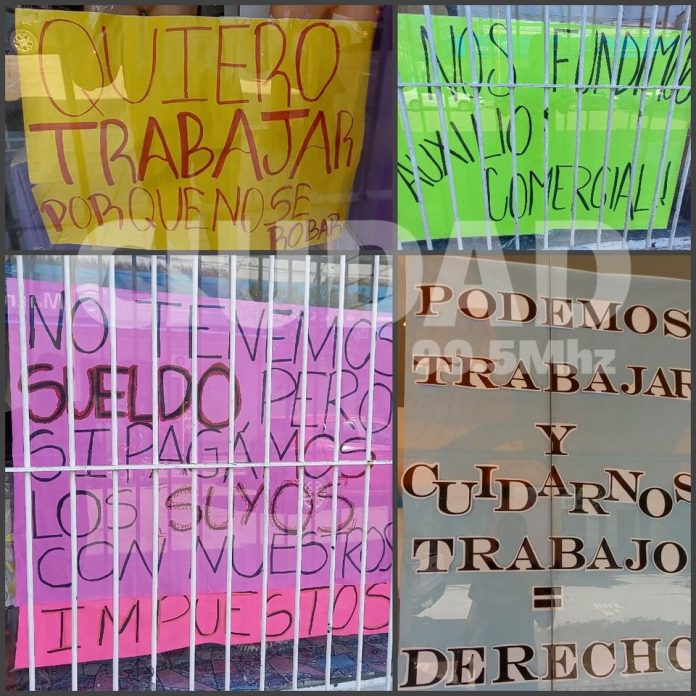 QUIERO
TRABAJAR
PORQUE NO SE
ROBAR
NOS FUNDIMOS
AUXILIO
COMERCIAL!
NO TENEMOS
SUELDO PERO
SI PAGÁMOS
LOS SUYOS
CON NUESTROS
IMPUESTOS
PODEMOS
TRABAJAR
Y
CUIDARNOS
TRABAJO
=
DERECHO
CIUDAD
99.5Mhz